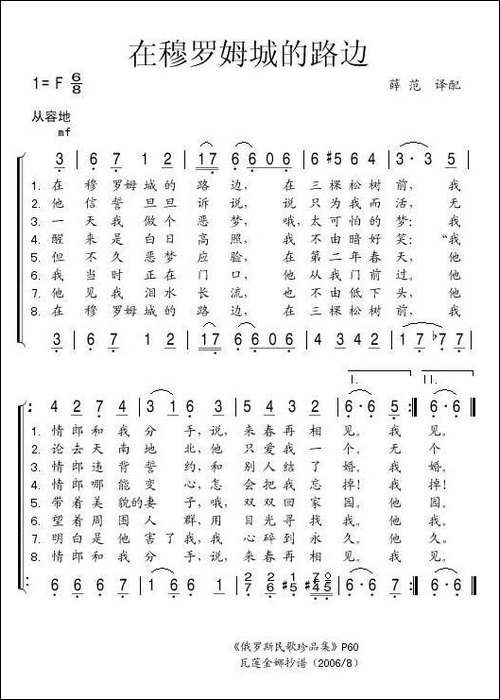 在穆罗姆城的路边
1=F 6/8
薛 范 译配
从容地
mf
3 | 6 7 1 2 | 17 6 606 | 6 #5 6 4 | 3· 3 5 |
1. 在 穆 罗 姆 城 的 路 边, 在 三 棵 松 树 前, 我
2. 他 信 誓 旦 旦 诉 说, 说 只 为 我 而 活, 无
3. 一 天 我 做 个 恶 梦, 哦, 太 可 怕 的 梦: 我
4. 醒 来 是 白 日 高 照, 我 不 由 暗 好 笑: “我
5. 但 不 久 恶 梦 应 验, 在 第 二 年 春 天, 他
6. 我 当 时 正 在 门 口, 他 从 我 门 前 过。 他
7. 他 见 我 泪 水 长 流, 也 不 由 低 下 头, 他
8. 在 穆 罗 姆 城 的 路 边, 在 三 棵 松 树 前, 我
3 | 6 7 1 2 | 17 6 606 | 4 3 4 2 | 17 b77 |
I. II.
4 2 7 4 | 3 1 6 3 | 2 4 3 2 | 6· 6· 5 :| 6· 6· ‖
1. 情 郎 和 我 分 手, 说, 来 春 再 相 见。 我 见。
2. 论 去 天 南 地 北, 他 只 爱 我 一 个。 无 个
3. 情 郎 违 背 誓 约, 和 别 人 结 了 婚。 我 婚。
4. 情 郎 哪 能 变 心, 怎 会 把 我 忘 掉! 我 掉!
5. 带 着 美 貌 的 妻 子, 哦, 双 双 回 家 园。 他 园。
6. 望 着 周 围 人 群, 用 目 光 寻 找 我, 他 我。
7. 明 白 是 他 害 了 我, 我 心 碎 到 永 久。 他 久。
8. 情 郎 和 我 分 手, 说, 来 春 再 相 见。 我 见。
《俄罗斯民歌珍品集》P60
瓦莲金娜抄谱 (2006/8)